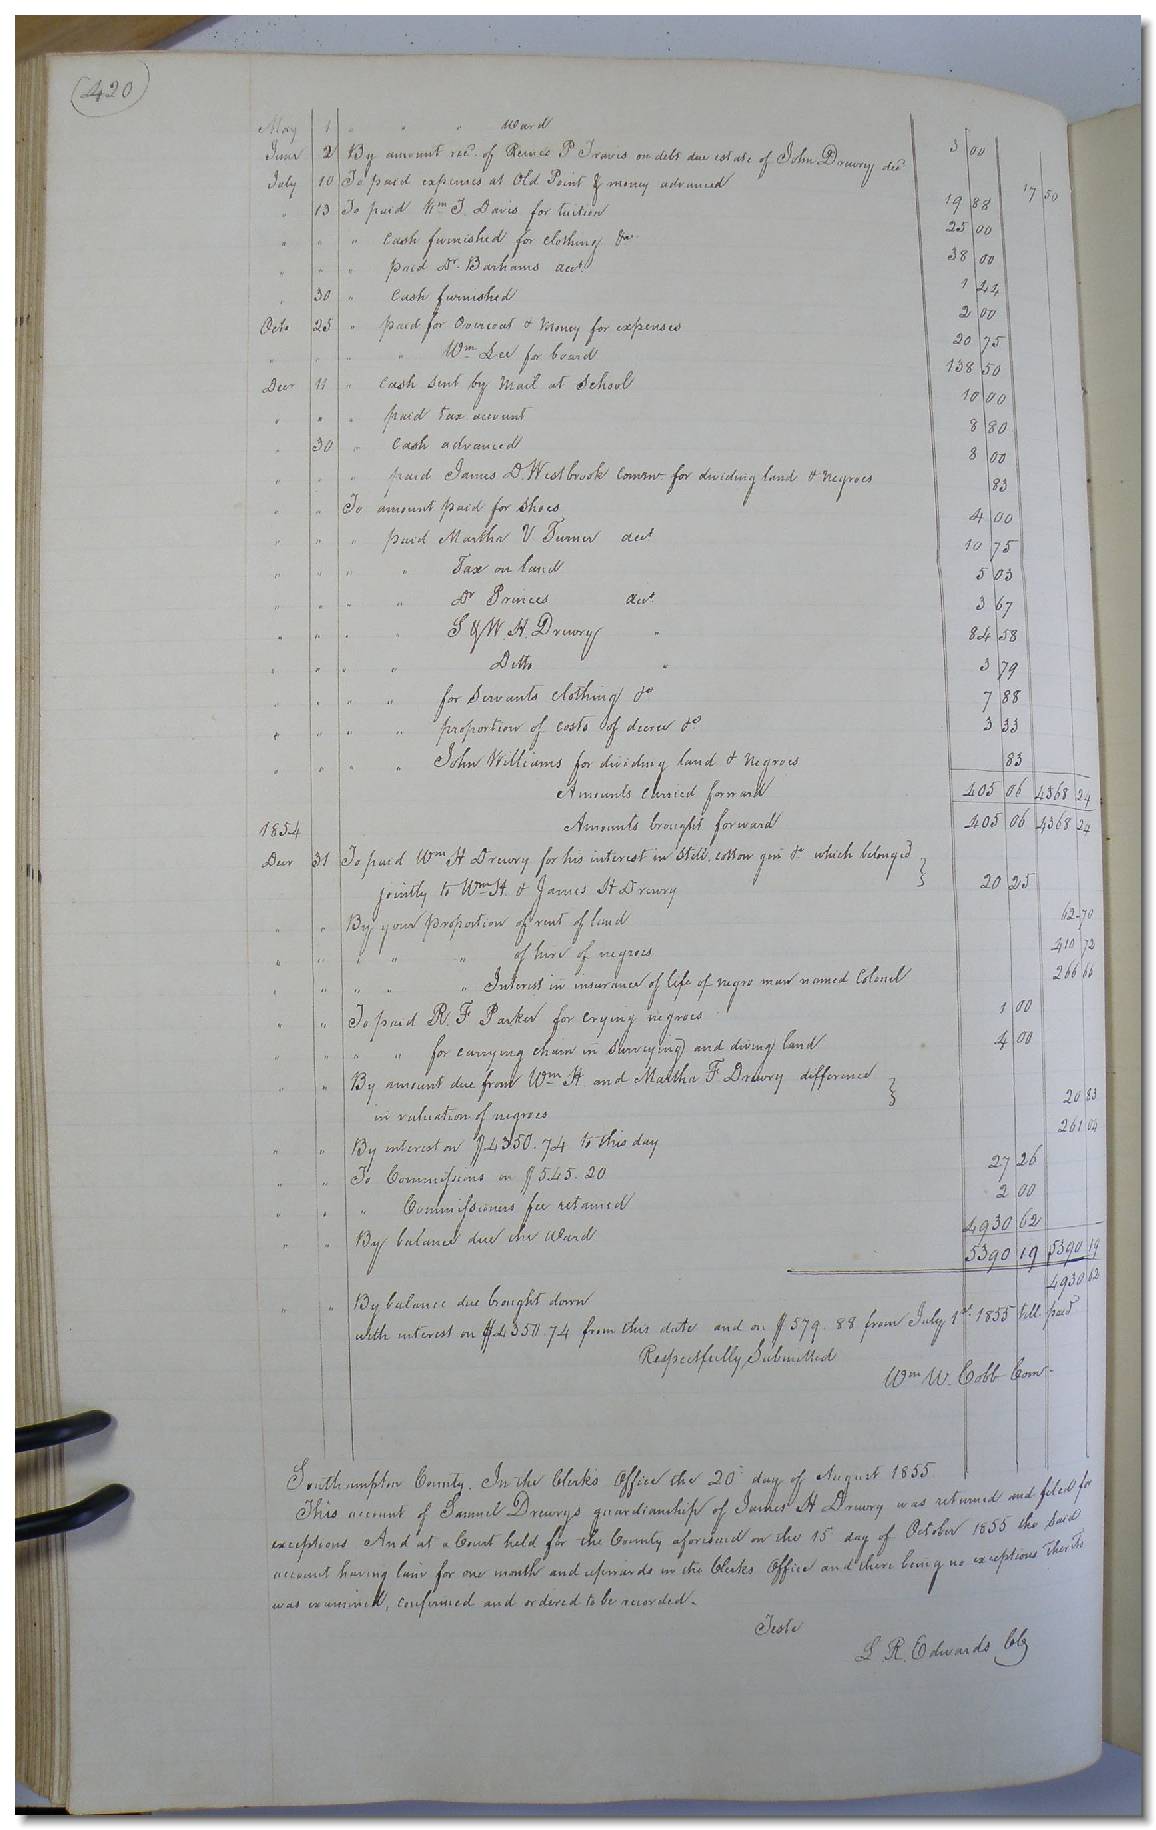 (420)
May 1 " " " Ward 3 00
June 2 By amount recd. of Reuves P Travis on debt due estate of John Drewry decd 17 50
July 10 To paid expenses at Old Point & money advanced 19 88
" 13 To paid Wm. J. Davis for tuition 25 00
" " " Cash furnished for clothing &c 38 00
" " " paid Dr. Barhams acct 1 44
" 30 " Cash furnished 2 00
Octo 25 " paid for Overcoat & Money for expenses 20 75
" " " " Wm Lee for board 138 50
Decr 11 " Cash sent by Mail at School 10 00
" " " paid tax account 8 80
" 30 " Cash advanced 8 00
" " " paid James D. Westbrook Commr for dividing land & negroes 83
" " To amount paid for shoes 4 00
" " " paid Martha V. Turner acct 10 75
" " " " Tax on land 5 03
" " " " Dr Princes acct 3 67
" " " " S & W. H. Drewry " 84 58
" " " " Ditto " 3 79
" " " " for Servants clothing &c 7 88
" " " " proportion of costs of decree &c 3 33
" " " " John Williams for dividing land & negroes 83
Amounts carried forward 405 06 4368 24
1854 Amounts brought forward 405 06 4368 24
Decr 31 To paid Wm H Drewry for his interest in Still, cotton gin &c which belonged }
jointly to Wm H. & James H Drewry 20 25
" " By your proportion of rent of land 62 70
" " " " " of hire of negroes 410 72
" " " " " Interest in insurance of life of negro man named Colonel 266 66
" " To paid R. F Parker for crying negroes 1 00
" " " " for carrying chain in surveying and diving land 4 00
" " By amount due from Wm H and Martha F Drewry difference }
in valuation of negroes 20 83
" " By interest on $4350.74 to this day 261 04
" " To Commissions on $545.20 27 26
" " " Commissioners fee retained 2 00
" " By balance due the Ward 4930 62
5390 19 5390 19
" " By balance due brought down 4930 62
with interest on $4350.74 from this date and on $579.88 from July 1st. 1855 till paid
Respectfully Submitted
Wm W. Cobb Com
Southampton County. In the Clerks Office the 20 day of August 1855
This account of Samuel Drewrys guardianship of James H Drewry was returned and filed for
exceptions And at a Court held for the County aforesaid on the 15 day of October 1855 the said
account having lain for one month and upwards in the Clerks Office and there being no exceptions thereto
was examined, confirmed and ordered to be recorded.
Teste
L R. Edwards Clk